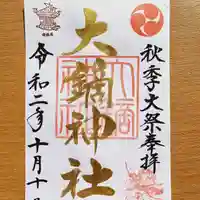 秋季大祭奉拝
大鏑神社
令和二年十月十日